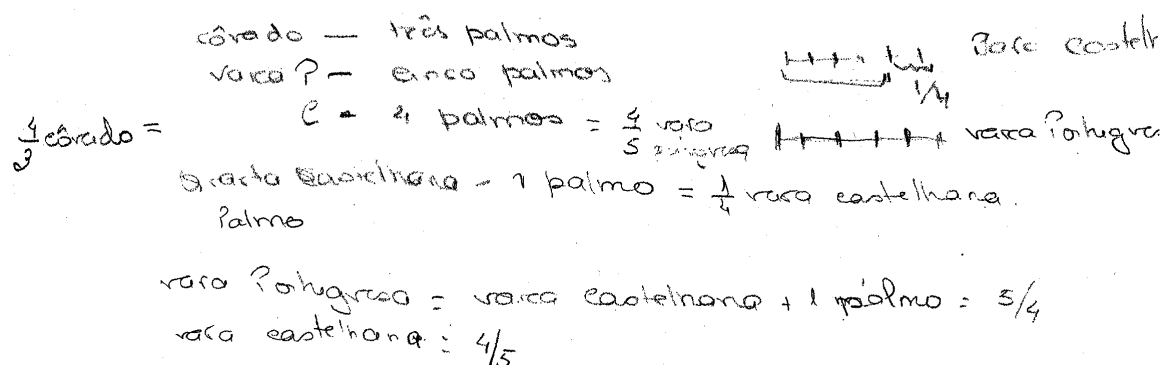 côvado — três palmos
vara P — cinco palmos
vara castelh
1/4
4/3 côvado =
C - 4 palmos = 4/5 vara
vara Portugue
castelhana - 1 palmo = 1/4 vara castelhana.
Palmo
vara Portuguesa = vara castelhana + 1 palmo = 5/4
vara castelhana = 4/5